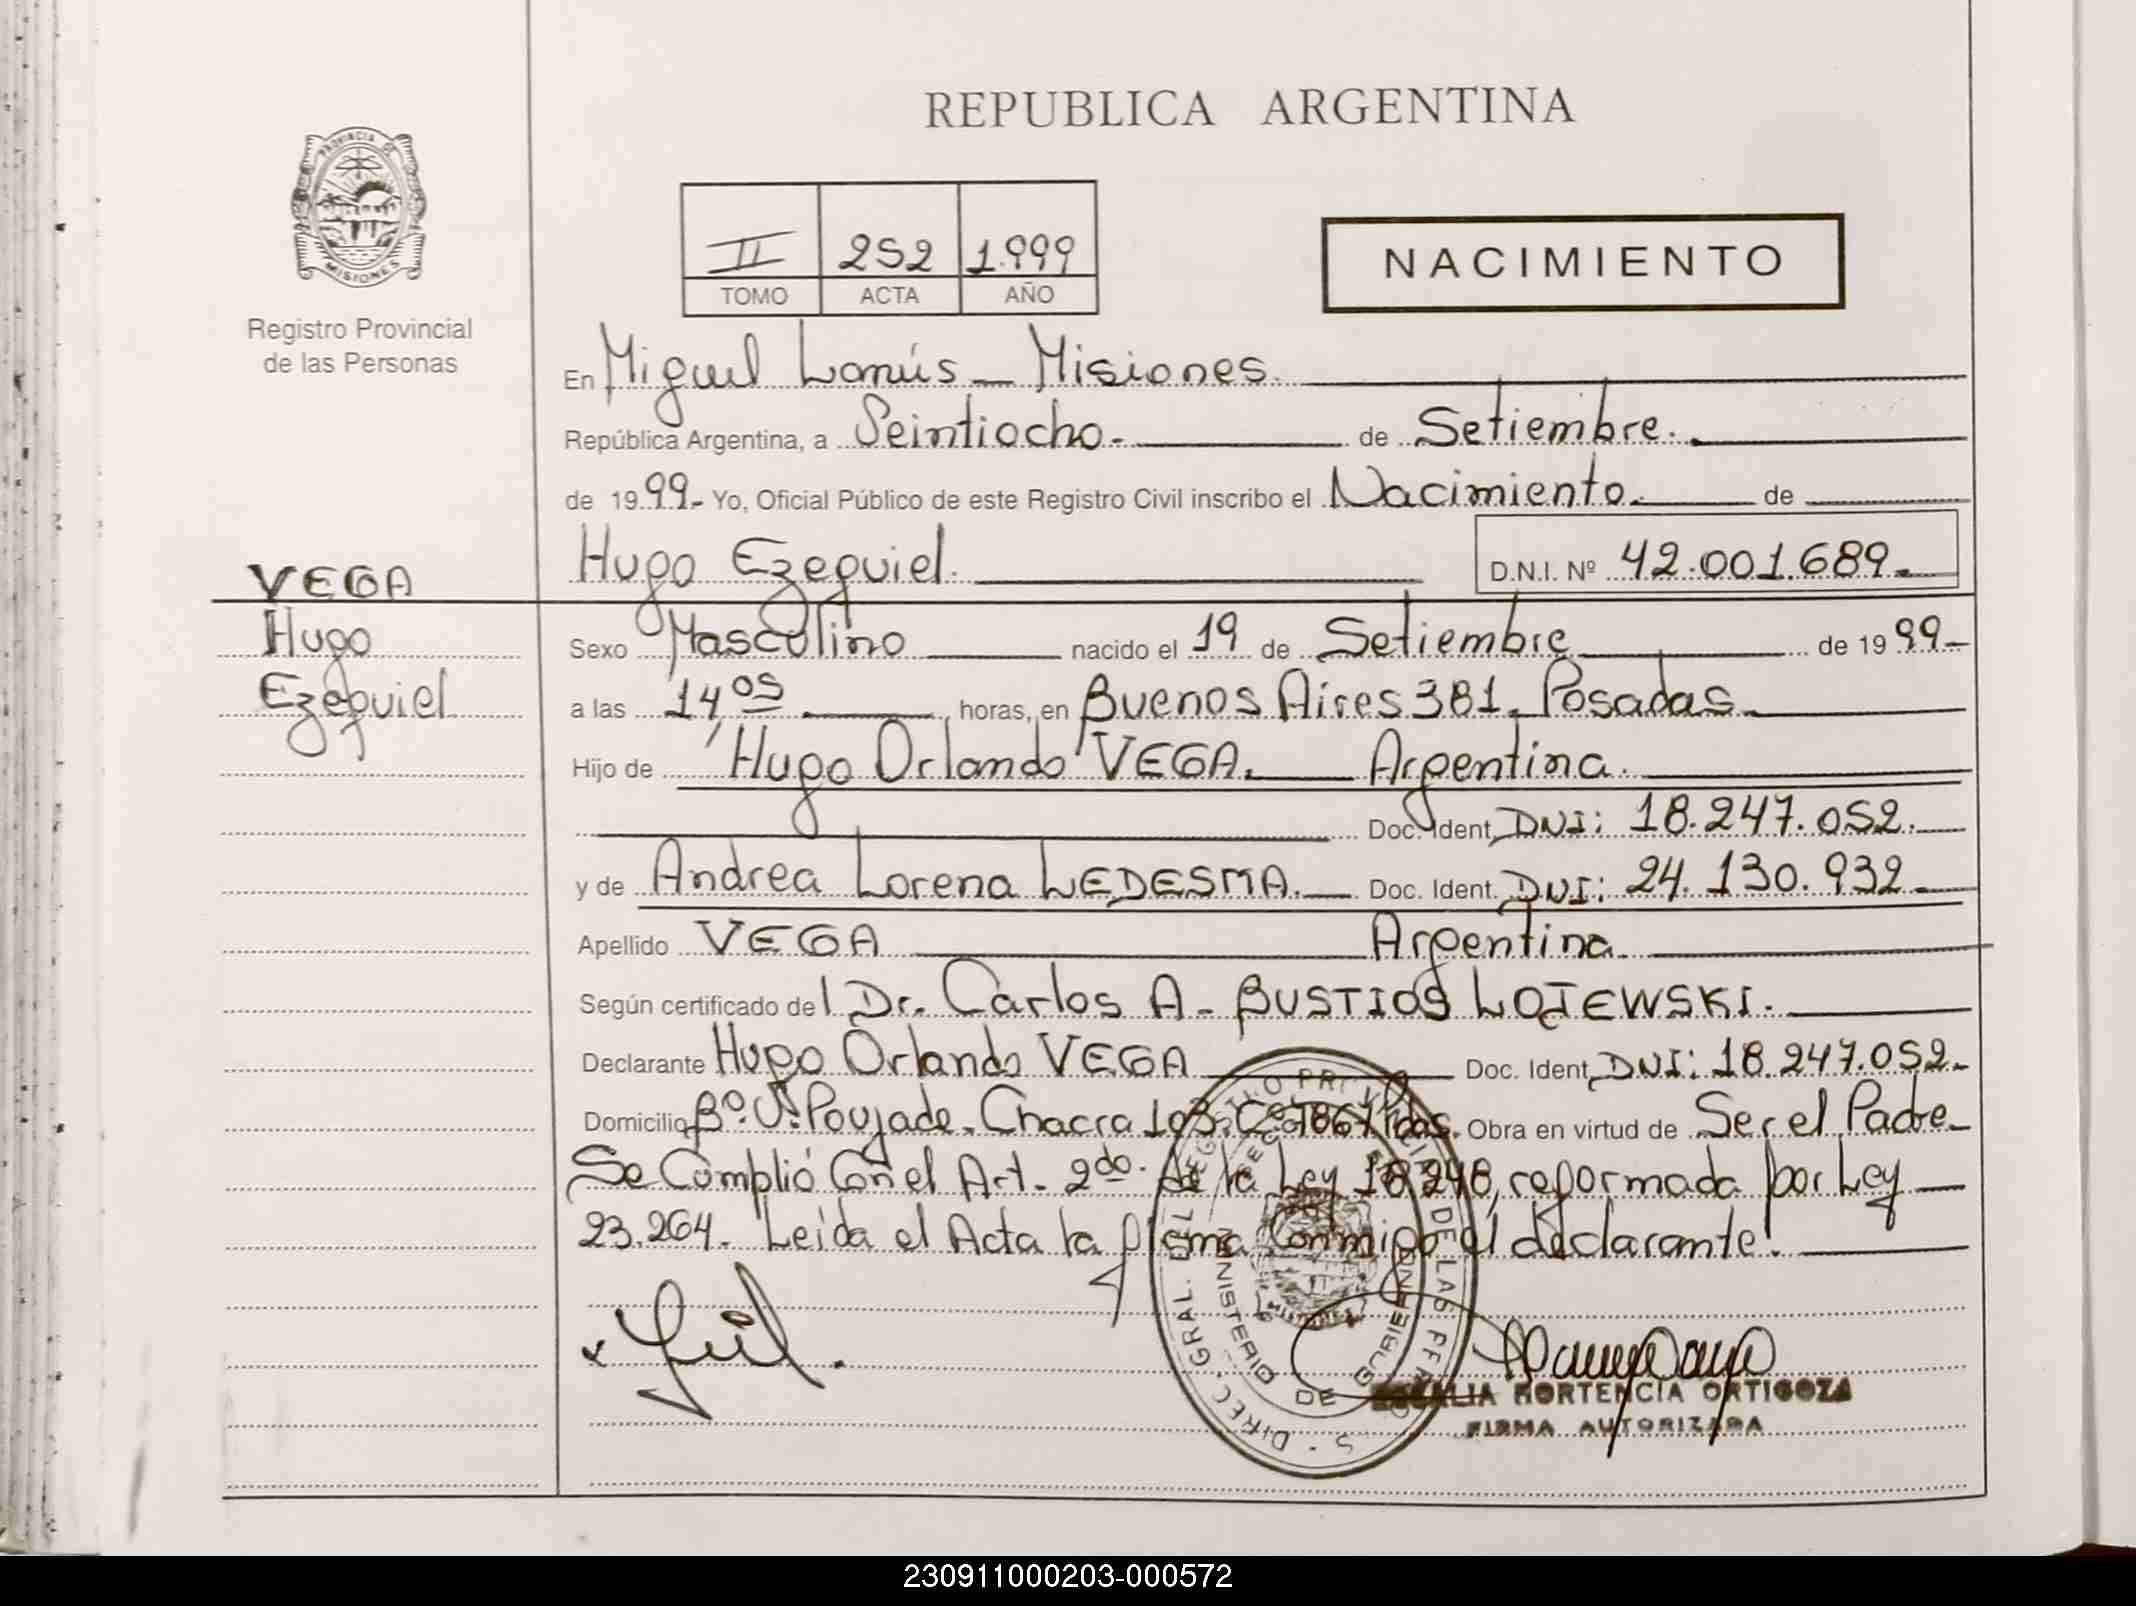 REPUBLICA ARGENTINA
PROVINCIA DE
MISIONES
Registro Provincial
de las Personas
II 252 1.999
TOMO ACTA AÑO
NACIMIENTO
En Miguel Lanús - Misiones.
República Argentina, a Veintiocho. de Setiembre.
de 19 99.- Yo, Oficial Público de este Registro Civil inscribo el Nacimiento. de
Hugo Ezequiel. D.N.I. Nº 42.001.689.-
VEGA
Hugo
Ezequiel
Sexo Masculino nacido el 19 de Setiembre de 19 99.-
a las 14,05 horas, en Buenos Aires 381. Posadas.
Hijo de Hugo Orlando VEGA. Argentina.
Doc. Ident. DNI: 18.247.052.
y de Andrea Lorena LEDESMA. Doc. Ident. DNI: 24.130.932
Apellido VEGA Argentina.
Según certificado del Dr. Carlos A. BUSTIOS LOJEWSKI.
Declarante Hugo Orlando VEGA Doc. Ident. DNI: 18.247.052.-
Domicilio Bº. Poujade. Chacra 103. Obra en virtud de Ser el Padre.
Se Cumplió Con el Art. 2do. de la Ley 18.248, reformada por Ley
23.264. Leída el Acta la firma Conmigo el declarante.
MINISTERIO DE GOBIERNO
HORTENCIA ORTIGOZA
FIRMA AUTORIZADA
230911000203-000572